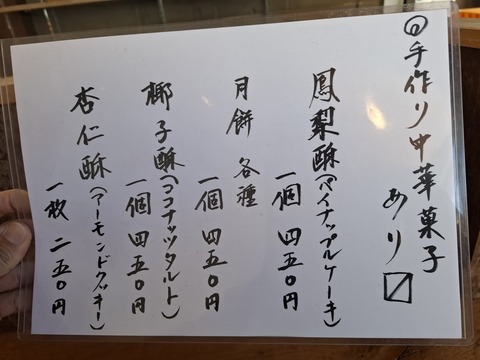 ◎手作り中華菓子
あり〼
鳳梨酥(パイナップルケーキ)
一個 四五〇円
月餅 各種
一個 四五〇円
椰子酥(ココナッツタルト)
一個 四五〇円
杏仁酥(アーモンドクッキー)
一枚 二五〇円